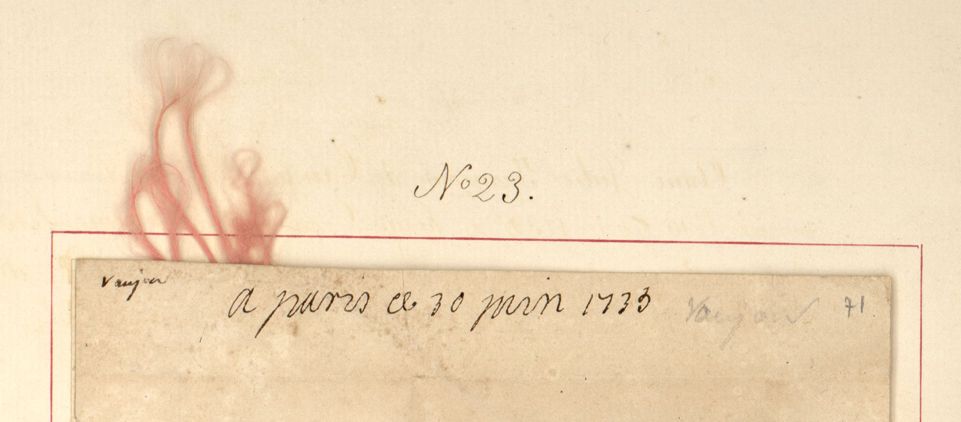 No 23.
Vaujour
a paris ce 30 juin 1733 Vaujour 71